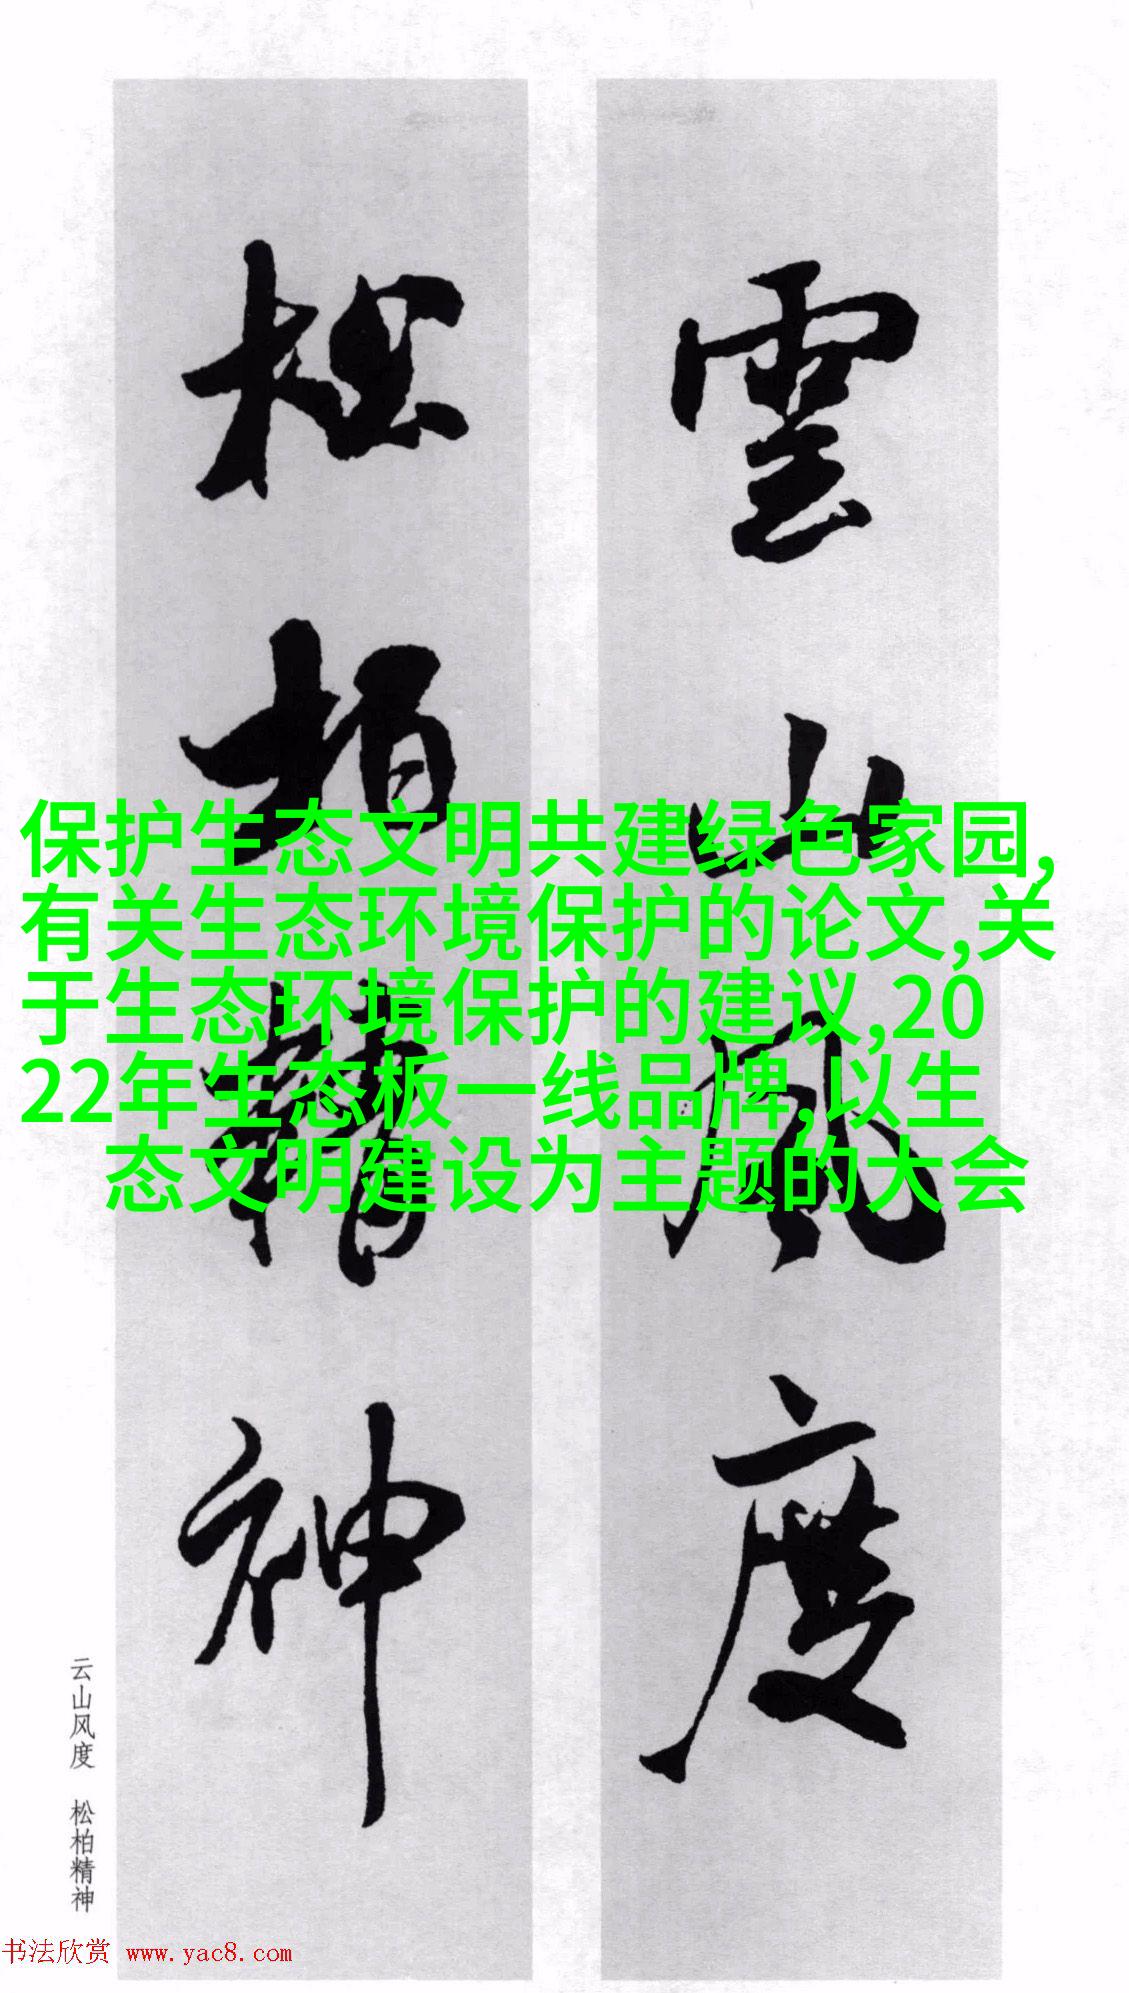 雲山風度
松柏精神
保护生态文明共建绿色家园,
有关生态环境保护的论文,关
于生态环境保护的建议,20
22年生态板一线品牌,以生
态文明建设为主题的大会
云山风度 松柏精神
书法欣赏 www.yac8.com